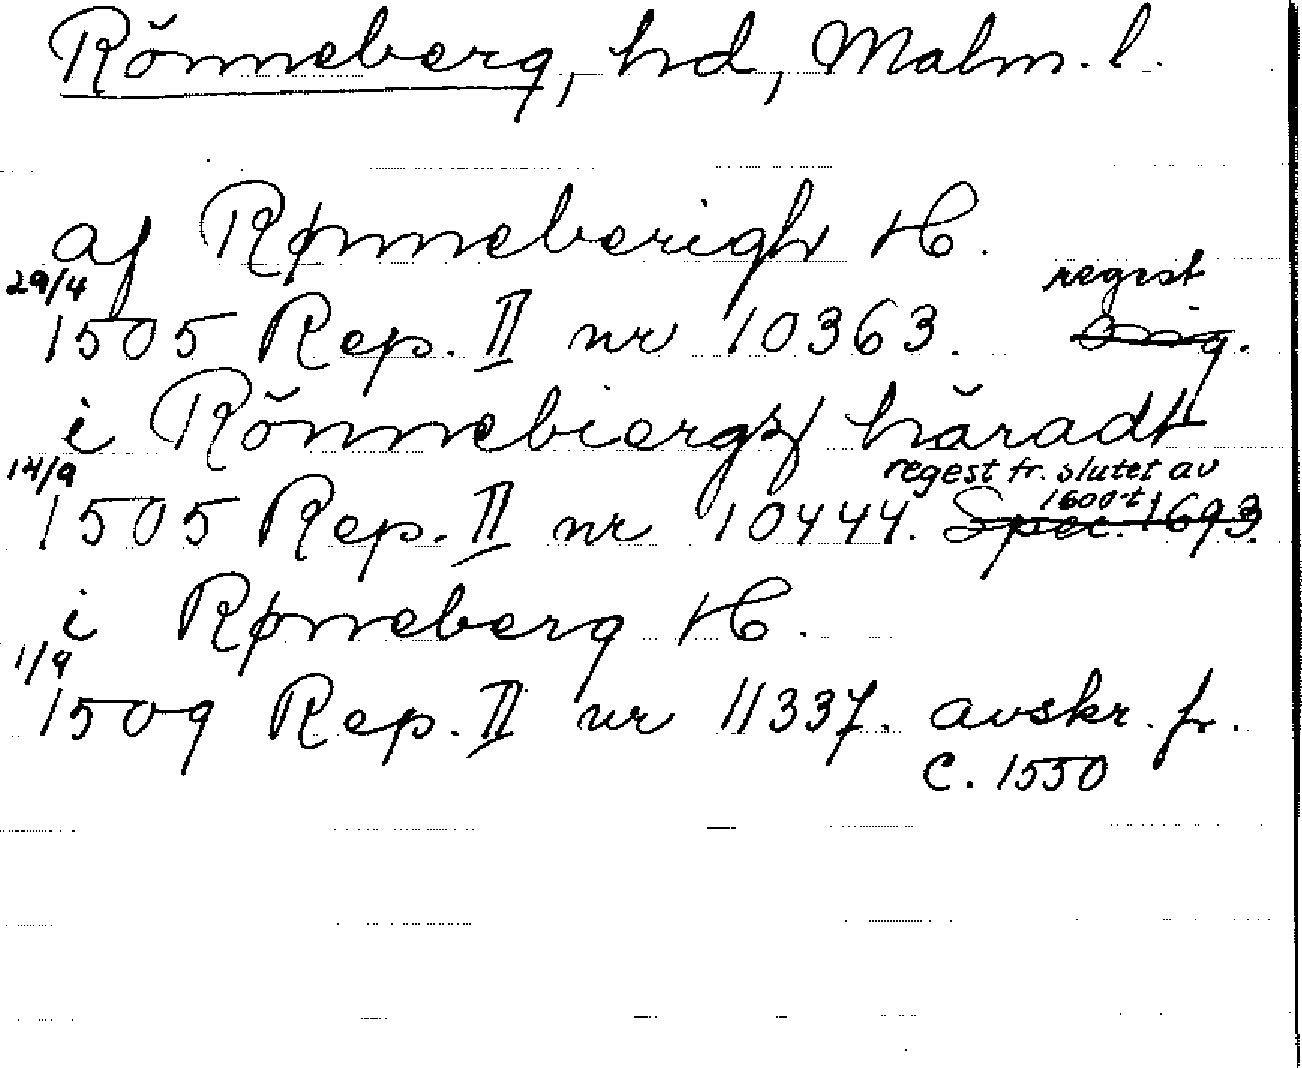 Rönneberg, hd, Malm. l.
af Rønneberigh H.
29/4 regest
1505 Rep. II nr 10363. orig.
i Rönnebiergs häradt
14/9 regest fr. slutet av
1600-t.
1505 Rep. II nr 10444. Spec. 1693.
i Rønneberg H.
1/9
1509 Rep. II nr 11337. avskr. fr.
c. 1550